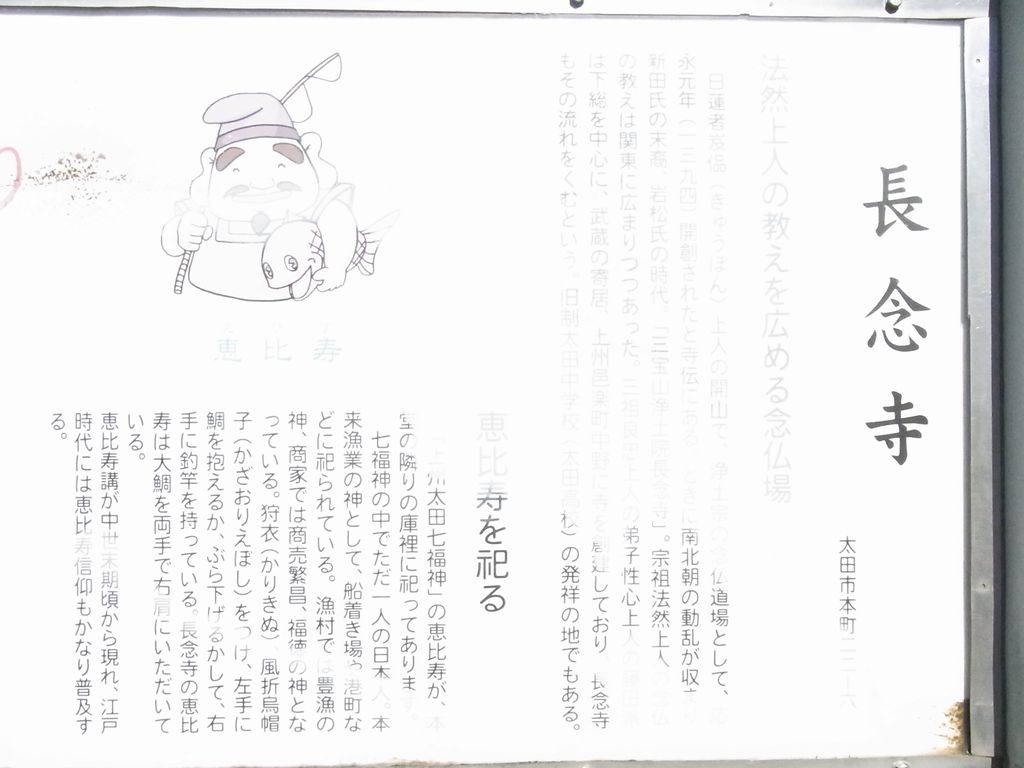 長念寺
太田市本町二二-六
法然上人の教えを広める念仏場
日蓮者及品(きゅうほん)上人の開山で、浄土宗の念仏道場として、応
永元年(一三九四)開創されたと寺伝にある。ときに南北朝の動乱が収まり
新田氏の末裔、岩松氏の時代。「三宝山浄土院長念寺」。宗祖法然上人の念仏
の教えは関東に広まりつつあった。三祖良忠上人の弟子性心上人の藤田派
は下総を中心に、武蔵の寄居、上州邑楽町中野に寺を創建しており、長念寺
もその流れをくむという。旧制太田中学校(太田高校)の発祥の地でもある。
恵比寿を祀る
「上州太田七福神」の恵比寿が、本
堂の隣りの庫裡に祀ってあります。
七福神の中でただ一人の日本人。本
来漁業の神として、船着き場や港町な
どに祀られている。漁村では豊漁の
神、商家では商売繁昌、福徳の神とな
っている。狩衣(かりきぬ)、風折烏帽
子(かざおりえぼし)をつけ、左手に
鯛を抱えるか、ぶら下げるかして、右
手に釣竿を持っている。長念寺の恵比
寿は大鯛を両手で右肩にいただいて
いる。
恵比寿講が中世末期頃から現れ、江戸
時代には恵比寿信仰もかなり普及す
る。
えびす
恵比寿